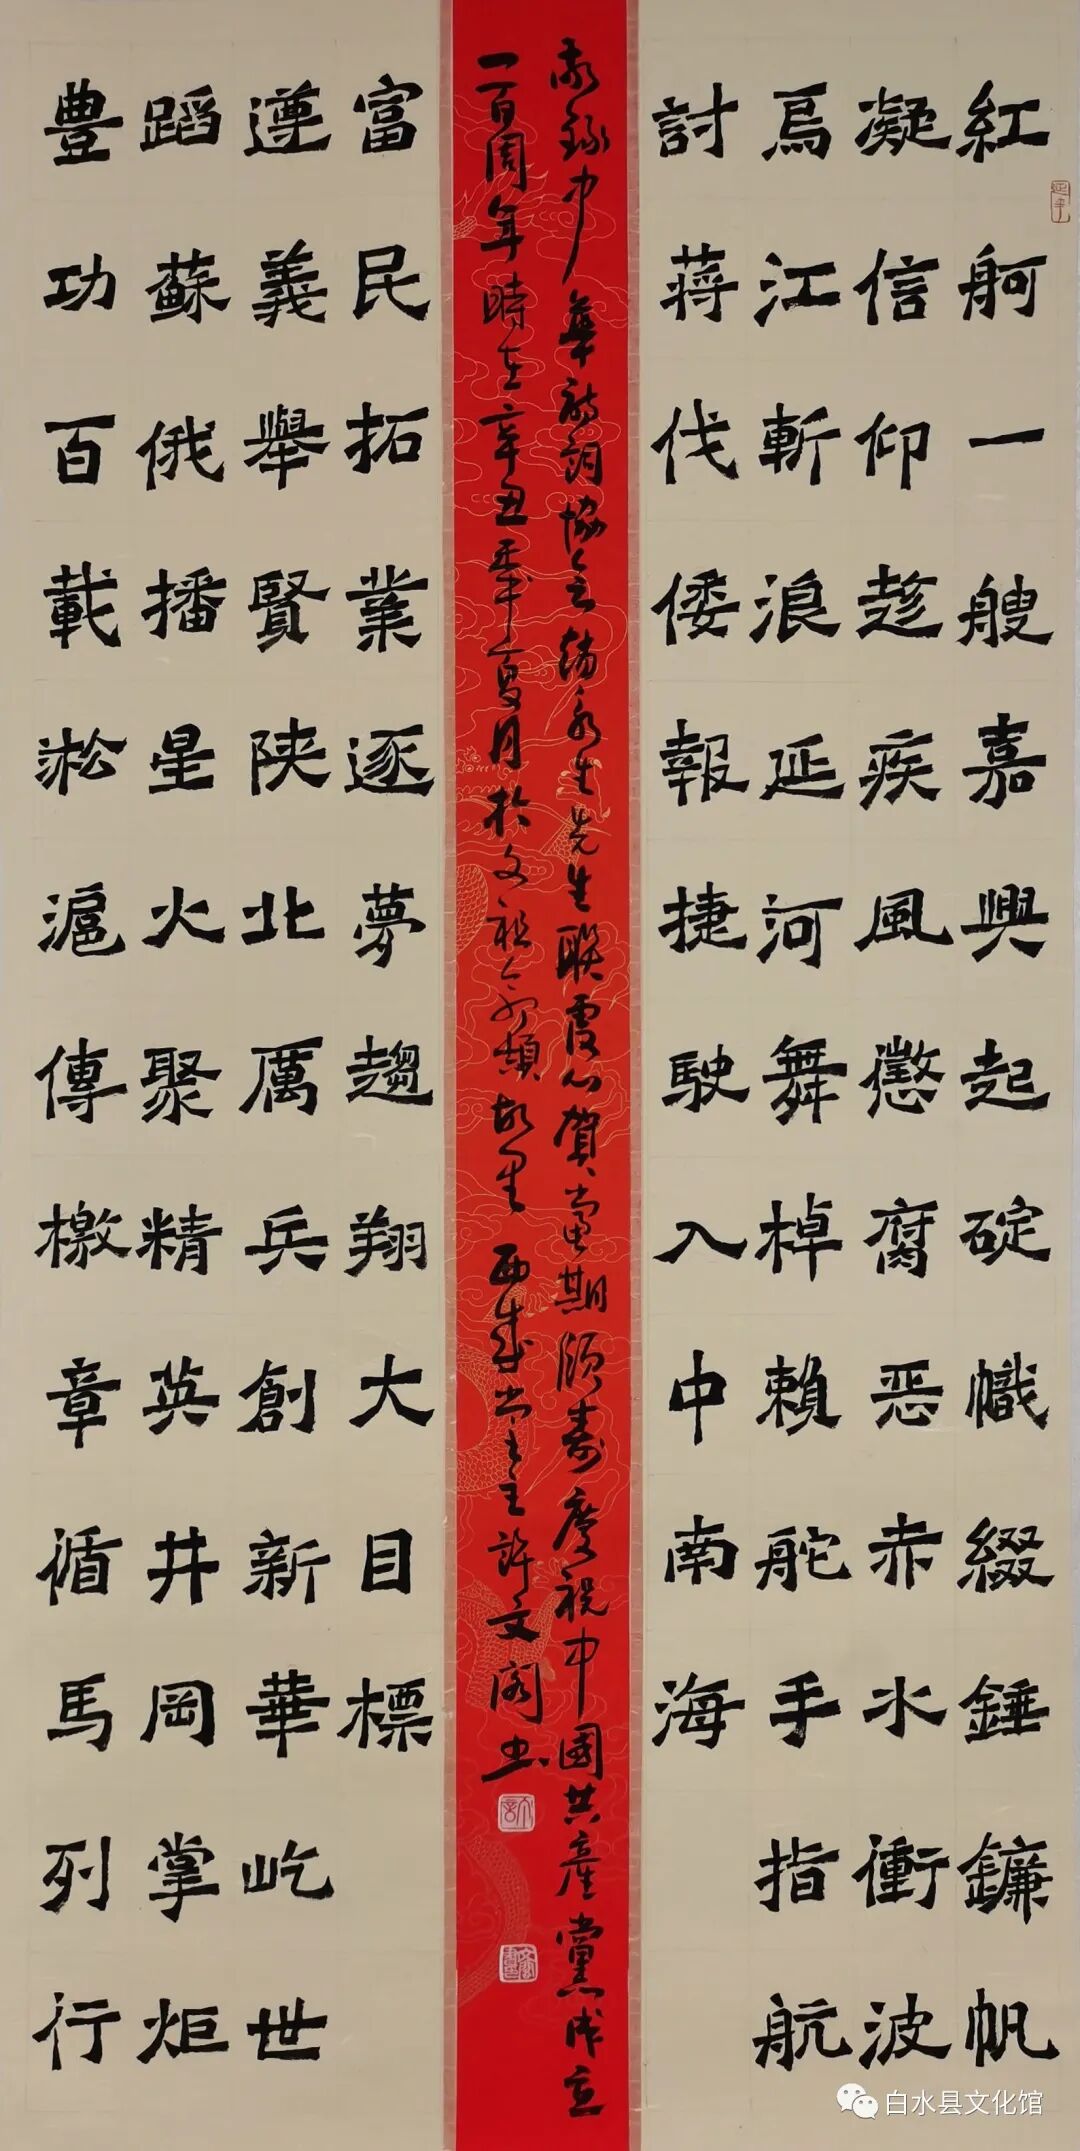 紅舸一艘嘉興起碇幟綴錘鐮帆
凝信仰趁疾風懲腐恶赤水衝波
烏江斬浪延河舞棹賴舵手指航
討蔣伐倭報捷駛入中南海
豊功百載淞滬傳檄章循馬列行
蹈蘇俄播星火聚精英井岡掌炬
遵義舉賢陕北厲兵創新華屹世
富民拓業逐夢趨翔大目標
敬錄中華詩詞協會韓永生先生聯虔心賀黨期頤壽慶祝中國共產黨成立
一百周年時在辛丑年夏月於文祖倉頡故里 西城堂主許文閣书
白水县文化馆